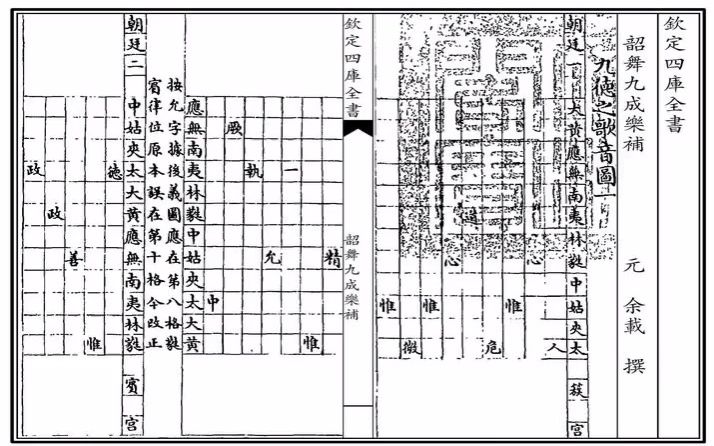 欽定四庫全書
韶舞九成樂補
元 余載 撰
九德之歌音圖
朝廷一 大黄應無南夷林蕤中姑夾太 蔟宮
人
心
惟
危
道
心
惟
微
惟
欽定四庫全書
韶舞九成樂補
精
惟
一
允
執
厥
中
應無南夷林蕤中姑夾太大黄
按允字據後義圖應在第八格蕤
賓律位原本誤在第十格今改正
朝廷二 中姑夾太大黄應無南夷林蕤 賓宮
德
惟
善
政
政